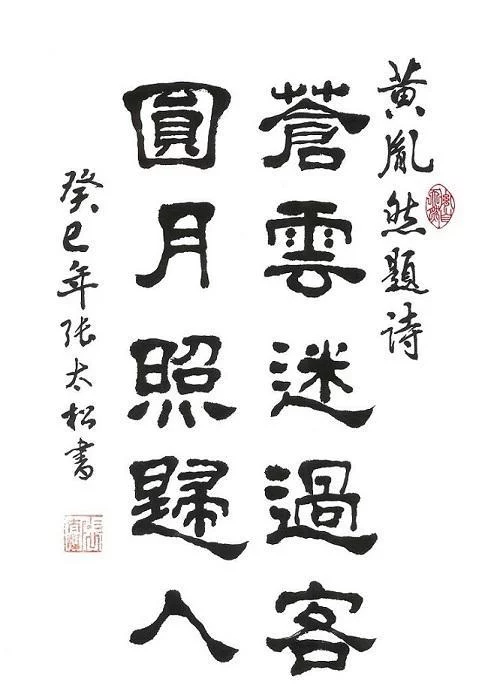 黄胤然题诗
蒼雲迷過客
圓月照歸人
癸巳年张太松書